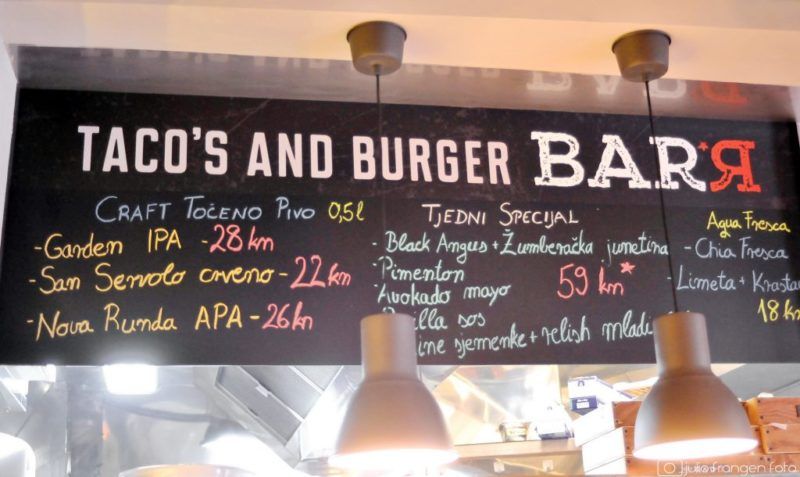 TACO'S AND BURGER BAR*Я
CRAFT TOČENO PIVO 0,5l
-Garden IPA -28 kn
-San Servolo crveno -22 kn
-Nova Runda APA -26 kn
TJEDNI SPECIJAL
- Black Angus + Žumberačka junetina
- Pimenton
Avokado mayo
59 kn*
sos
sjemenke + relish
Agua Fresca
- Chia Fresca
Limeta +
18 k